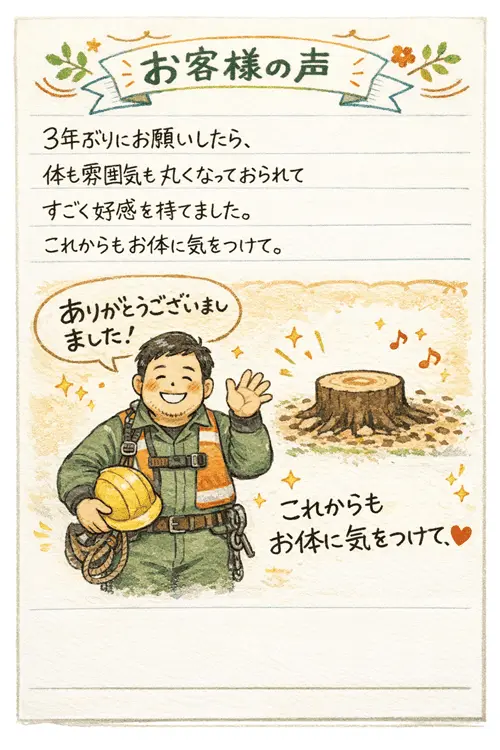 お客様の声
3年ぶりにお願いしたら、
体も雰囲気も丸くなっておられて
すごく好感を持てました。
これからもお体に気をつけて。
ありがとうございまし
ました!
これからも
お体に気をつけて、